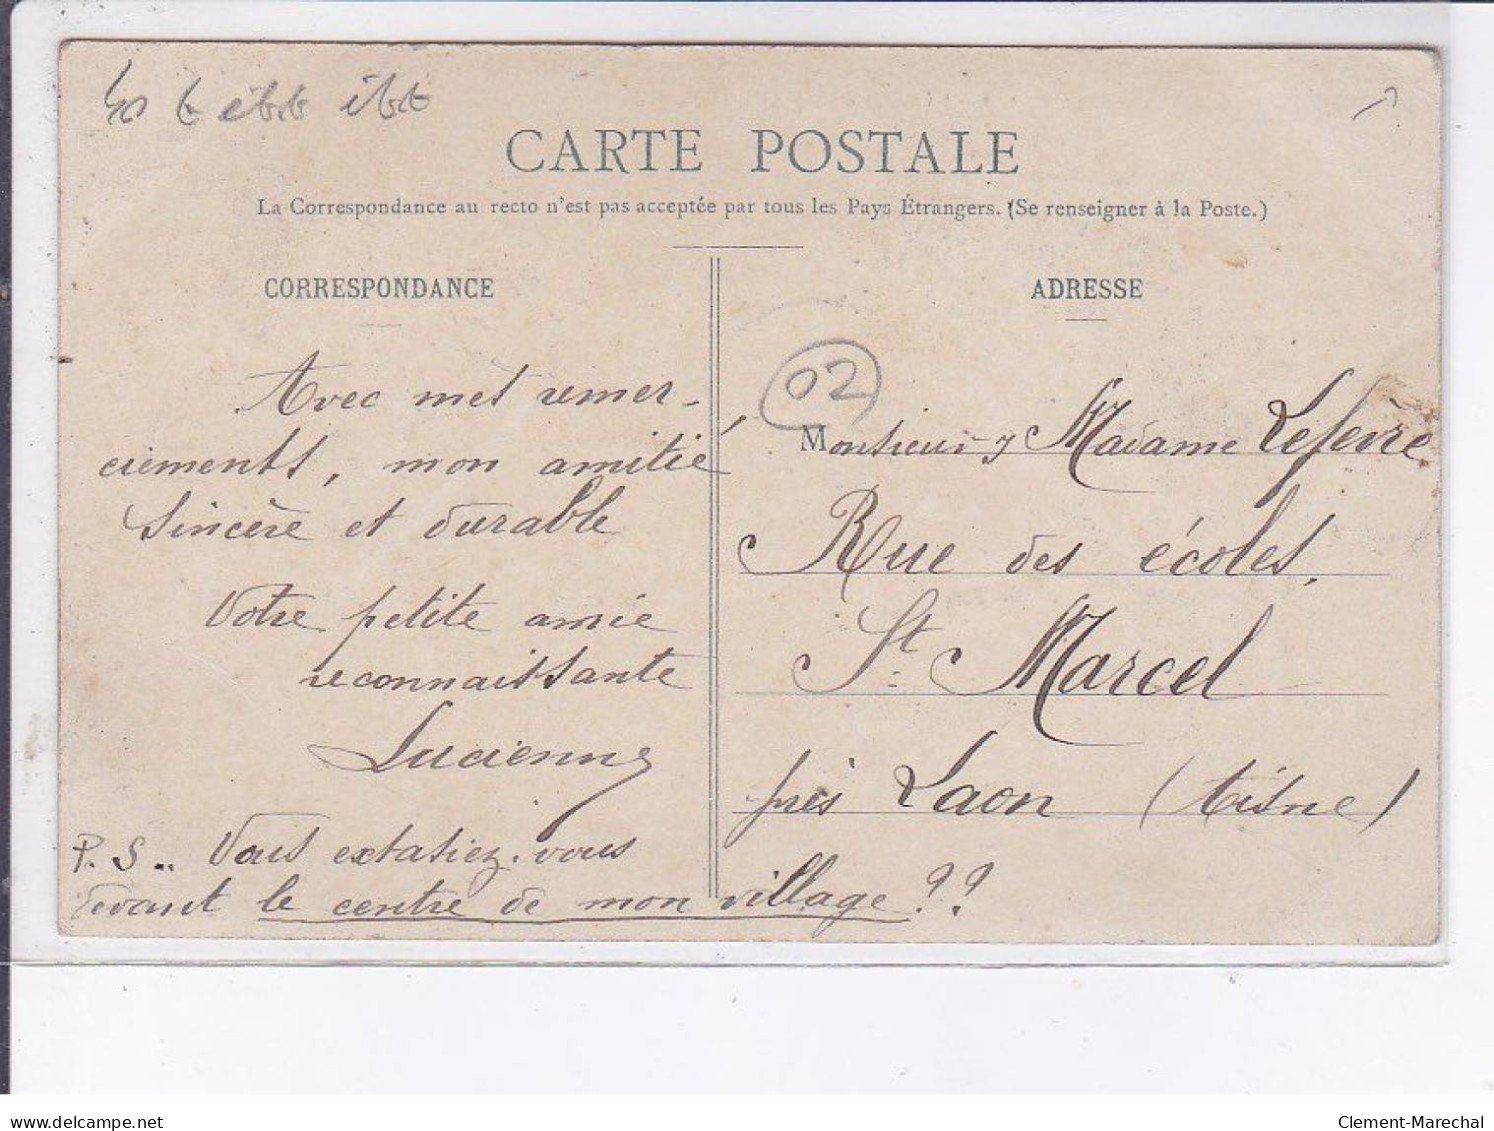 CARTE POSTALE
La Correspondance au recto n'est pas acceptée par tous les Pays Étrangers. (Se renseigner à la Poste.)
CORRESPONDANCE
Avec mes remer-
ciements, mon amitié
sincère et durable
Votre petite amie
reconnaissante
Lucienne
P. S.. Vous extasiez-vous
devant le centre de mon village ??
ADRESSE
02
Monsieur & Madame Lefevre
Rue des écoles,
St. Marcel
près Laon (Aisne)
delcampe.net
Clement-Marechal